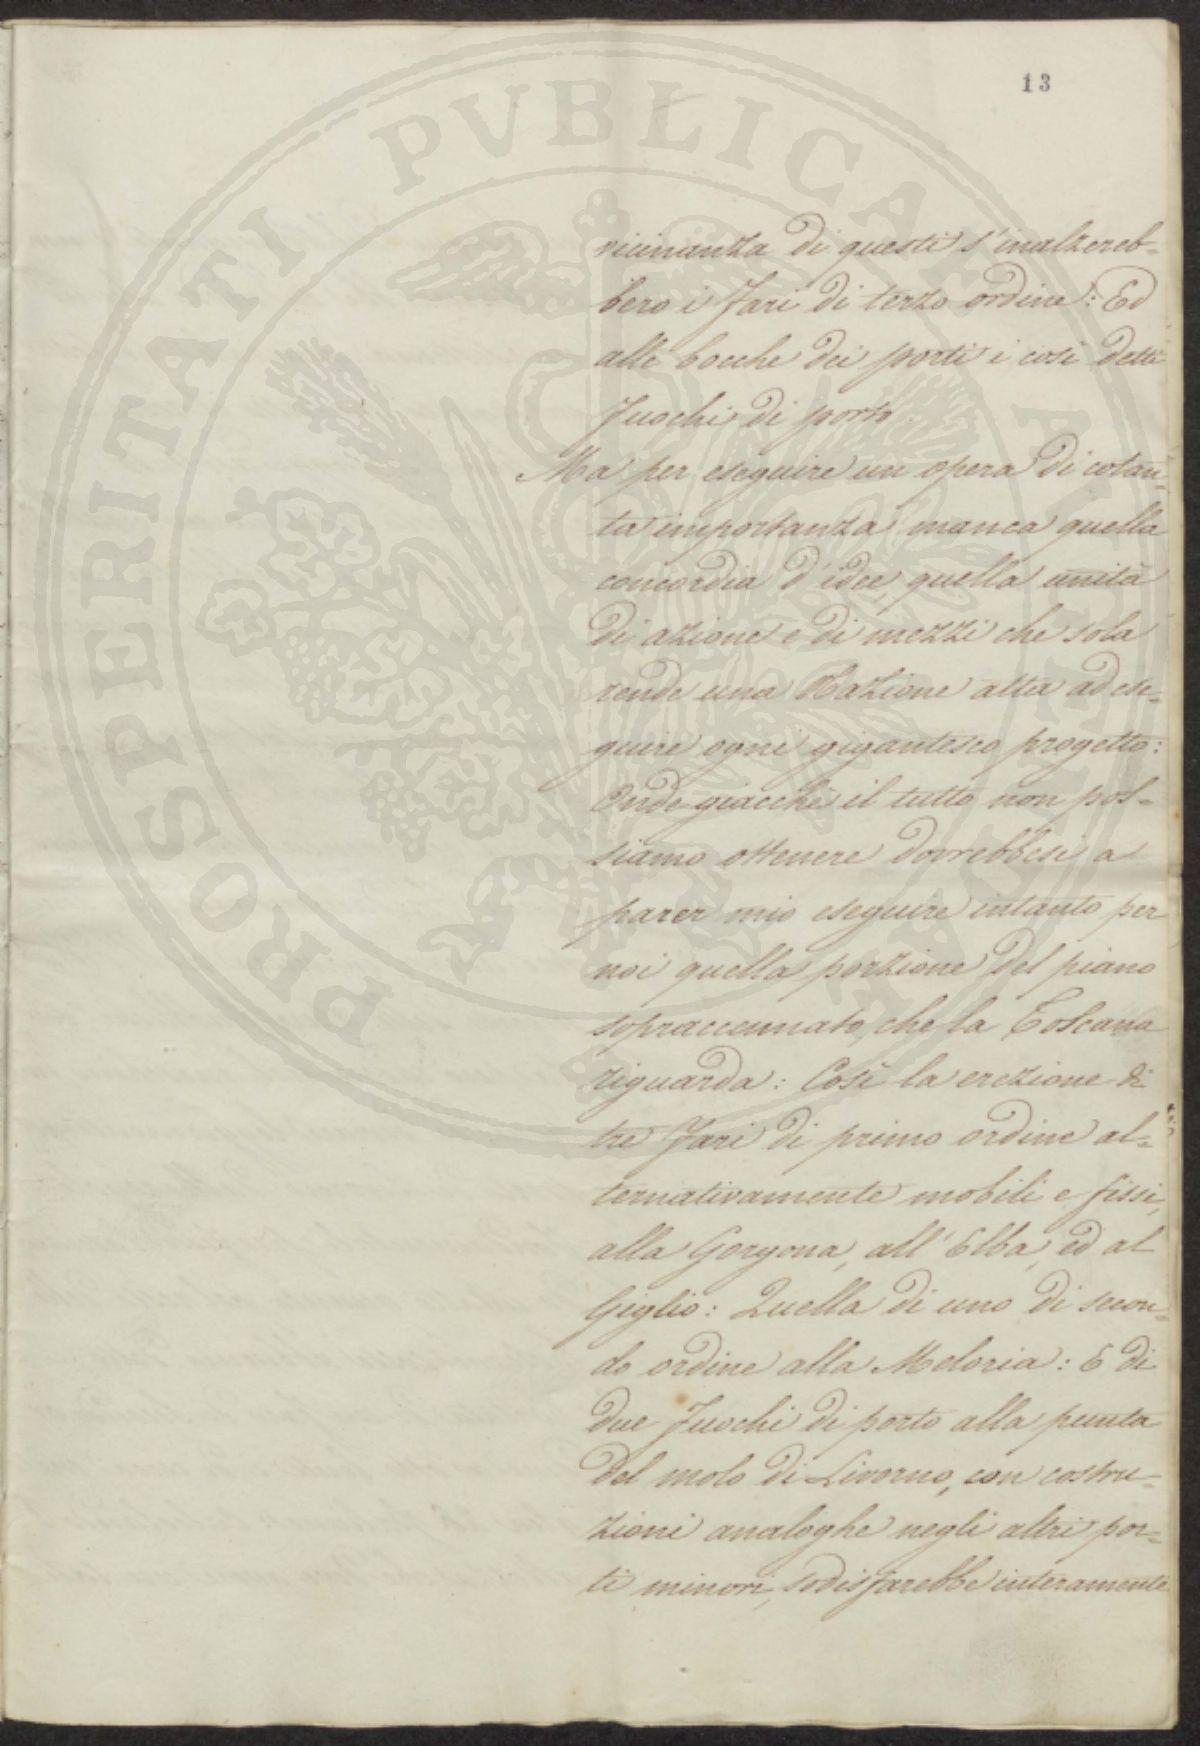 13
PROSPERITATI PVBLICAE AVGENDAE
vicinanza di questi s'inalzereb-
bero i Fari di terzo ordine: Ed
alle bocche dei porti i così detti
Fuochi di porto.
Ma per eseguire un opera di cotan-
ta importanza manca quella
concordia d'idee, quella unità
di azione e di mezzi che sola
rende una Nazione atta ad ese-
guire ogni gigantesco progetto:
Onde giacchè il tutto non pos-
siamo ottenere dovrebbesi a
parer mio eseguire intanto per
noi quella porzione del piano
sopraccennato, che la Toscana
riguarda: Così la erezione di
tre Fari di primo ordine al-
ternativamente mobili e fissi,
alla Gorgona, all'Elba, ed al
Giglio: Quella di uno di secon-
do ordine alla Meloria: E di
due Fuochi di porto alla punta
del molo di Livorno, con costru-
zioni analoghe negli altri por-
ti minori, sodisfarebbe interamente